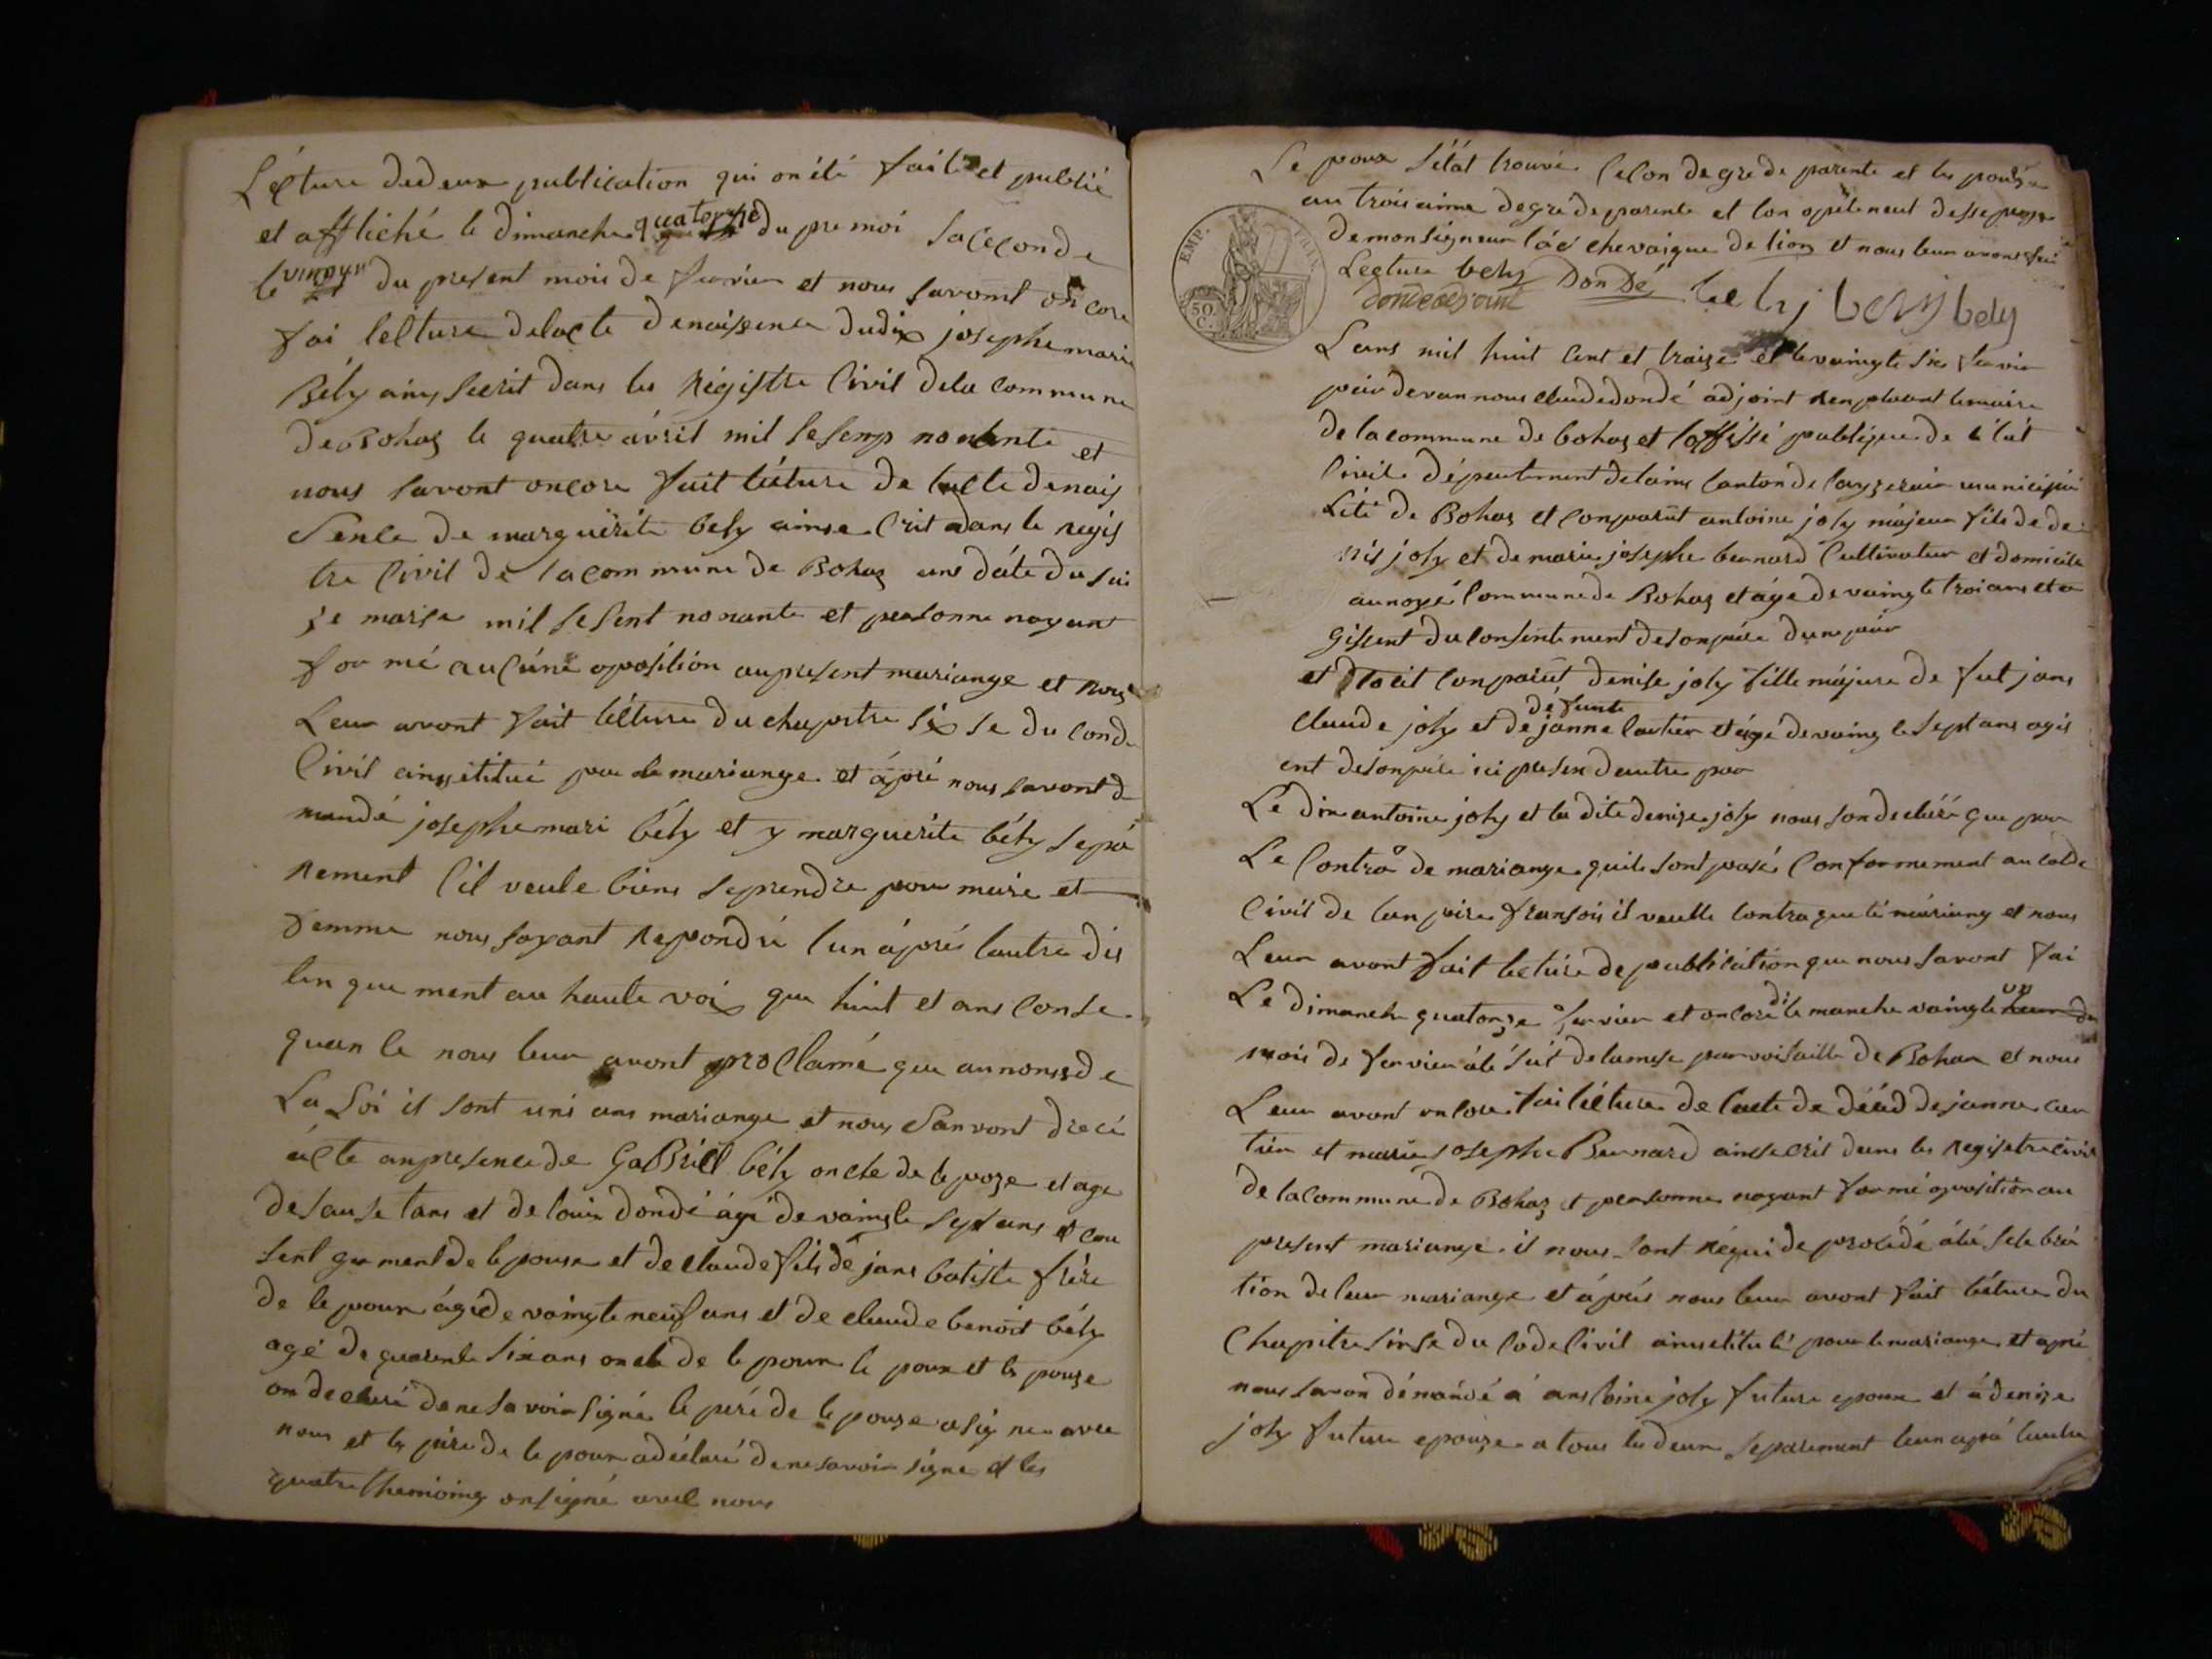 Lécture dedeux publication qui on été fait et publié
et affliché le dimanche quatorze du pre moi la ceconde
le vingtun du present mois de fevrier et nous lavont oncore
fai lelture delacte denaissence dudix josephe marie
Bély ainsy secrit dans les Régistre Civil dela commune
de Bohaz le quatre ávril mil sesemp nonante et
nous lavont oncore fait lécture de lacte denais
sence de marguérite bely ainse crit dans le regis
tre Civil de la commune de Bohaz ans dáte du sai
ze marse mil sesent nonante et personne nayant
formé aucúne oposition aupresent mariange et nous
Leur avont fait lécture du chapistre six se du conde
Civil ainsetitué pour le mariange et ápré nous lavont de
mandé josephe mari bély et y marguerite bély sepá
rement cil veule biens seprendre pour marie et
femme nous sayant Repondu lun ápré lautre dis
tenquement au haute voix que hiut et ans conse
quanle nous leur avont proclamé que aunomsde
La Loi il sont uni ans mariange et nous Sanvont drecé
ácte anpresence de GaBriell bély oncle de lepoze et age
desause tans et de louis dondé ágé de vaingte sept ans et cou
sent germent de lepouse et de claude fils de jans batiste frére
de lepoux ágé de vaingte neuf ans et de claude benoit bély
agé de quarente six ans oncle de lepoux le poux et les pouze
on declaré denesavoir signé le péré de lepouze asigner avec
nous et le pére de le poux adéclaré denesavoir signe et les
quatre themoing onsigné avec nous
Le poux sétat trouvé celon degre de parente et les pouse
au troisainne degré de parente et lon opetenut dessepense
de monsigneur láé chevaique de lion et nous leur avons fai
Lecture bely Dondé bely bely
dondé adjoint
EMP.
50
C.
Lans mil huit cent et traize et levaingte six fevrie
peir devan nous claude dondé adjoint Renplasant lemaire
de la commune de bohaz et loffissié publique de létát
Civile département delains canton de Cayzeriair municipá
Lité de Bohaz et conparut antoine joly májeur fils de de
nis joly et de marie josephe bernard Cultivateur et domicile
aunoyé commune de Bohaz et áge de vaingte troi ans et a
gissent du consentement desonpére dune pár
et Ploeit conparút denise joly fille májure de fut jans
défunte
claude joly et de janne cartier et áge de vaing te sept ans agis
ent desonpére ici presen dautre par
Lé dix antoine joly et la dite denize joly nous son declaré que par
Le contrá de mariange quil sont pasé conformement au colde
Civil de lanpire fransois il veulle contraque té máriang et nous
Leur avont fait lectúre de publicátion que nous lavont fai
Le dimanche quatorze fevrier et oncore di le manche vaingte un du
mois de fevrier álé sút delamese parroisaille de Bohaz et nous
Leur avont oncore fai lécture de lacte de décéd de janne car
tier et marie josephe Bernard ainse crit dans les Registre civil
de la commune de Bohaz et personne nayant formé oposition au
present mariange il nous sont Réqui de procédé álá selebrá
tion de leur mariange et ápréś nous leur avont fait lécture du
Chapitre sinse du code Civil ainsetitulé pour le mariange et apré
nous lavon démandé á antoine joly future epoux et á denize
joly future epouze a tous les deux separement leun apré lautre